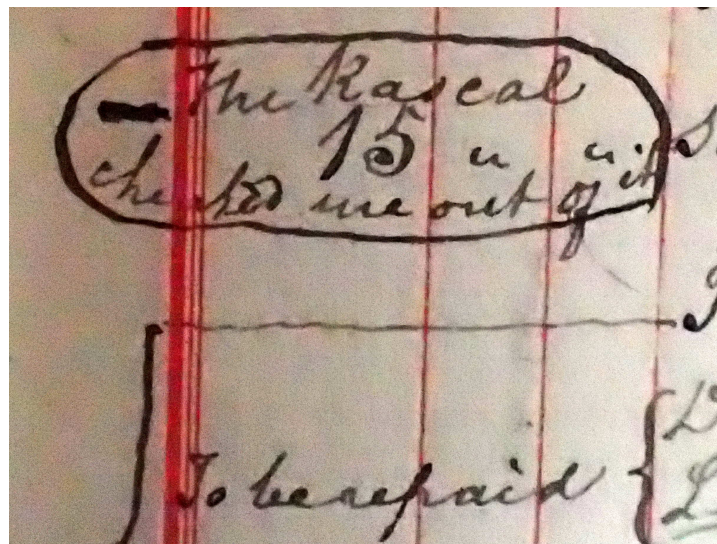 The Rascal
15 " "
cheated me out of it
To be repaid